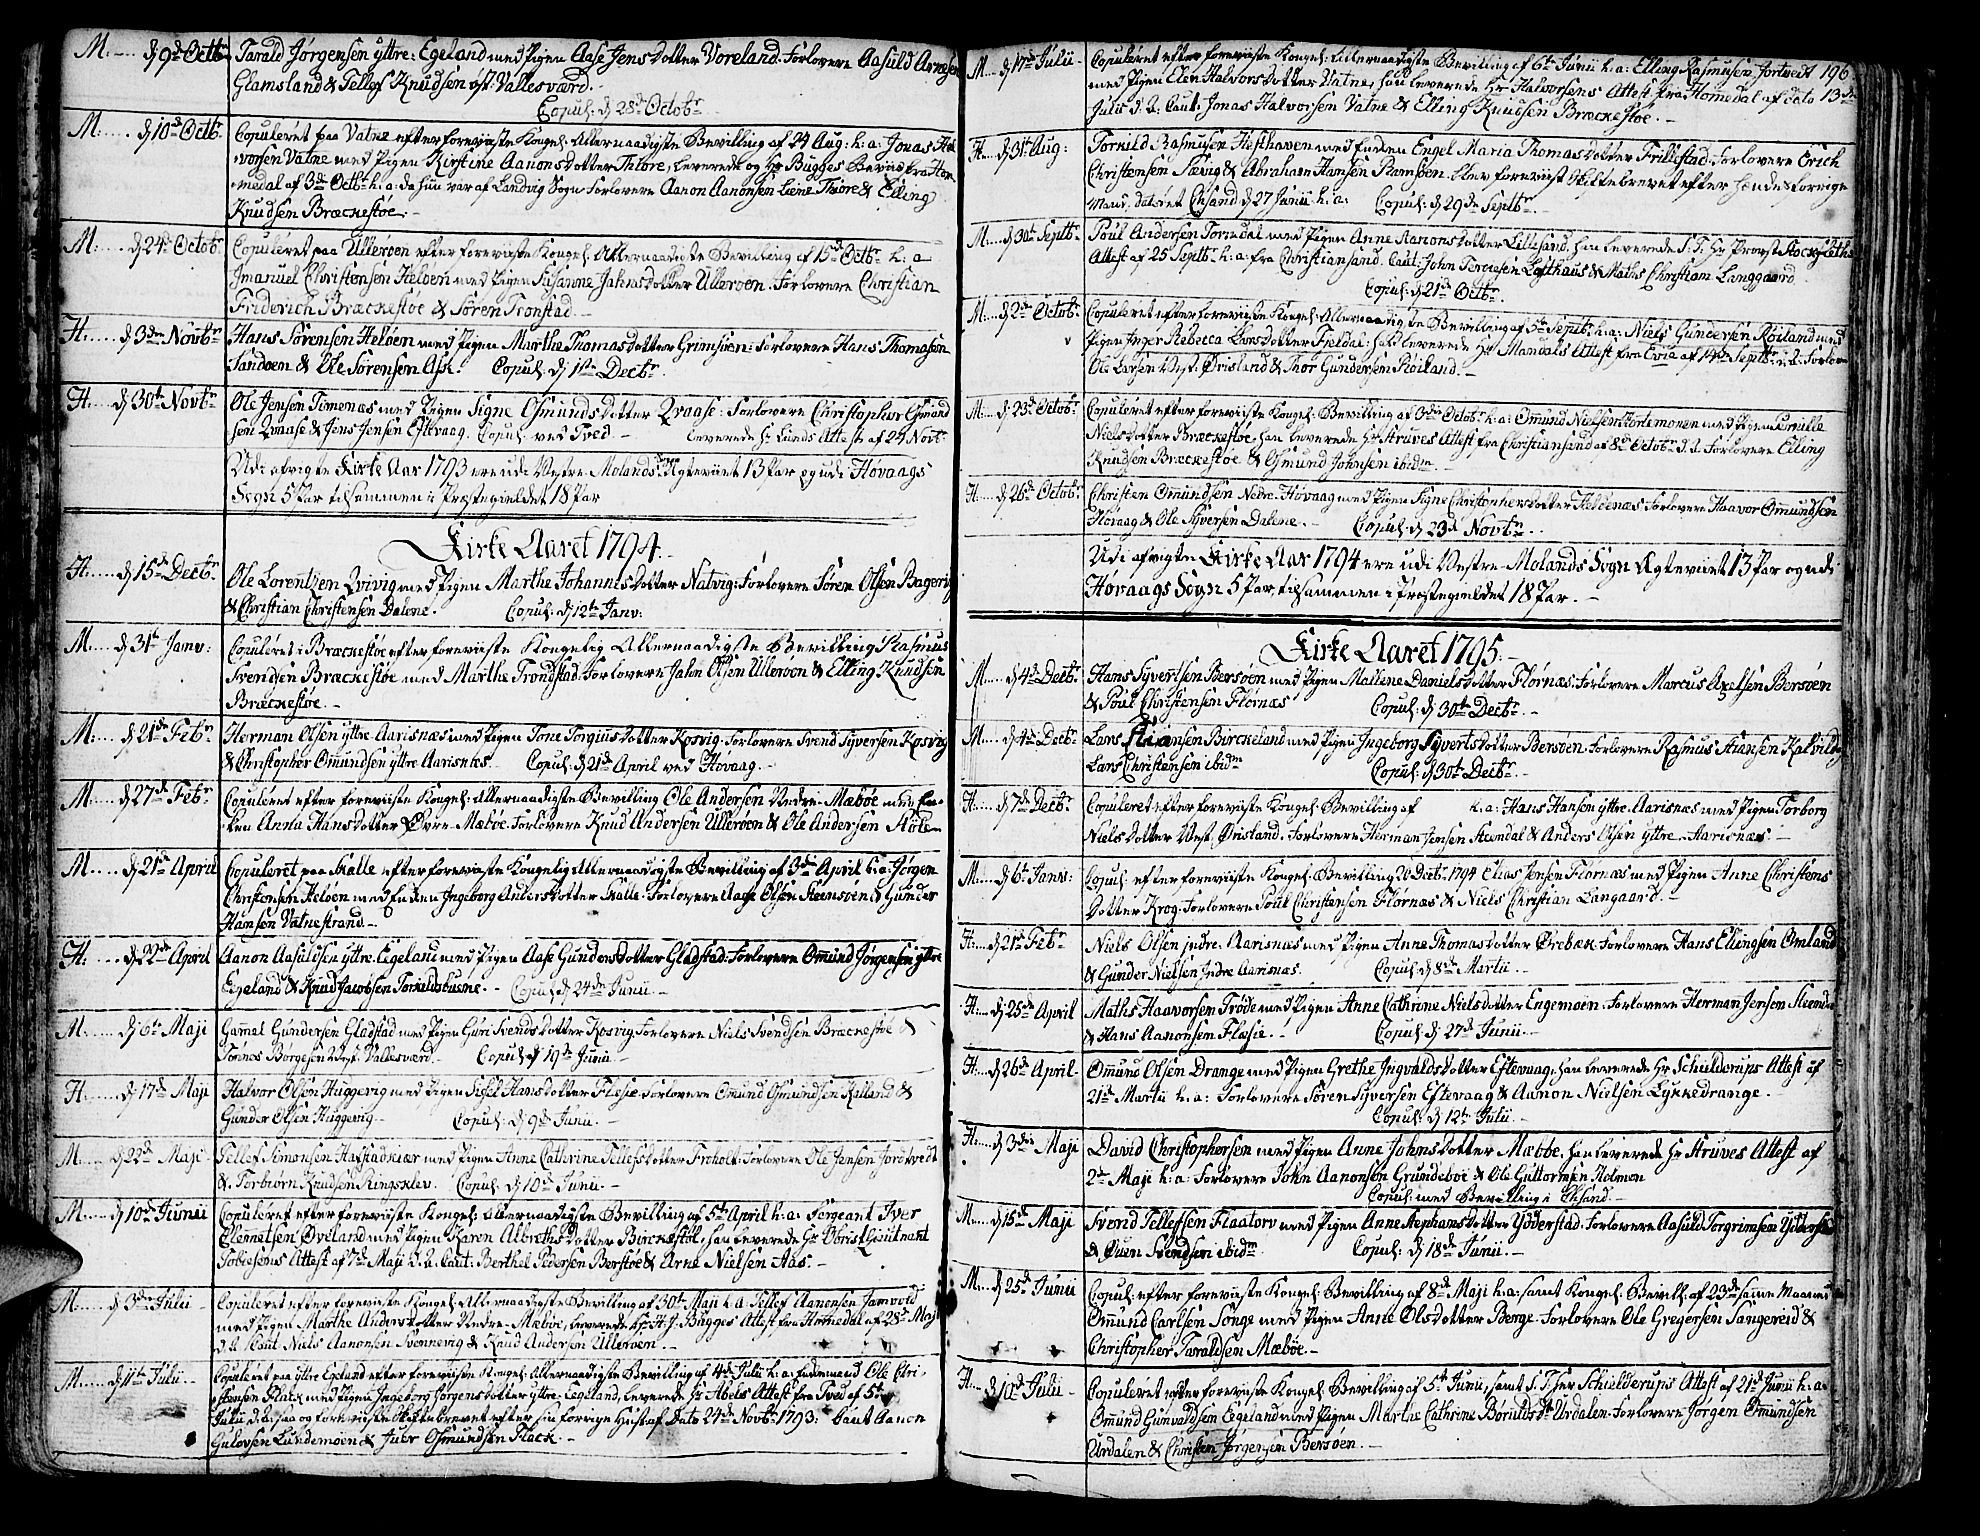 M. .... d 9de Octbr. Tarald Jørgensen Yttre-Egeland med Pigen Aase Jensdotter Voreland. Forlovere Aasuld Arnesen
Glamsland & Tellef Knudsen øst. Vallesværd.
Copul: d 28de Octobr
M. .... d 10de Octb. Copuleret paa Vatne efter foreviiste Kongel. Allernaadigste Bevilling af 24 Aug: h.a: Jonas Hal-
vorsen Vatne med Pigen Kirstine Aanonsdotter Thiøre, leverede og Hr Bugges Beviis fra Hom-
medal af 3de Octb. h.a. da hun var af Landvig Sogn. Forlovere Aanon Aanonsen Thiøre & Elling
Knudsen Bræckestøe.
M. ... d 24de Octobr. Copuleret paa Ulleröen efter foreviiste Kongel. Allernaadigste Bevilling af 15de Octbr. h: a
Imanuel Christensen Heløen med Pigen Susanne Jahnsdotter Ulleröen. Forlovere Christian
Friderich Bræckestøe & Sören Tronstad.
H. ... d 3die Novbr Hans Sørensen Heløen med Pigen Marthe Thomasdotter Grimsöen: Forlovere Hans Thomasen
Sandöen & Ole Sörensen Ask. Copul: d 1ste Decbr.
H. ... d 30te Novbr Ole Jensen Timenæs med Pigen Signe Osmundsdotter Qvaase: Forlovere Christopher Osmund
sen Qvaase & Jens Jensen Eftevaag. Copul: ved Tved. leverede Hr Lunds Attest af 24 Novb:
Udi afvigte Kirke Aar 1793 ere udi Vestre-Molands Sogn Ægteviet 13 Par og udi Høvaags
Sogn 5 Par tilsammen i Præstegieldet 18 Par
Kirke Aaret 1794.
H. ... d 15de Decbr Ole Lorentzen Qvivig med Pigen Marthe Johannisdotter Natvig: Forlovere Sören Olsen Bagerie
& Christian Christensen Dalene. Copul: d 12te Janv:
M. ... d 31te Janv: Copuleret i Bræckestøe efter foreviiste Kongelig Allernaadigste Bevilling Rasmus
Svendsen Bræckestøe med Marthe Trondstad. Forlovere Jahn Olsen Ulleröen & Elling Knudsen
Bræckestøe.
M. ... d 21de Febr. Herman Olsen Yttre-Aarisnæs med Pigen Tone Torgiusdotter Kosvig. Forlovere Svend Syversen Kosvig
& Christopher Omundsen Yttre Aarisnes. Copul: d 21de April ved Høvaag.
M. ... d 27de Febr Copuleret efter foreviiste Kongel. Allernaadigste Bevilling Ole Andersen Nedre-Mæbøe med En-
ken Anna Hansdotter Øvre-Mæbøe. Forlovere Knud Andersen Ulleröen & Ole Andersen
M. ... d 21de April Copuleret paa Skalle efter foreviiste Kongelig Allernaadigste Bevilling af 3die April h:a: Jørgen
Christensen Heløen med Enken Ingeborg Andersdotter Skalle. Forlovere Aage Olsen Steensøen & Gunder
Hansen Vatnestrand.
H. ... d 22de April Aanon Aasuldsen Yttre-Eegeland med Pigen Aase Gundersdotter Gladstad. Forlovere Omund Jørgensen yttre
Egeland & Knud Jacobsen Torkildsbusne. Copul: d 24de Junii.
M. ... d 6te Maji Gamal Gundersen Gladstad med Pigen Guri Svendsdotter Kosvig. Forlovere Niels Svendsen Bræckestøe &
Tönnes Börgesen Vest. Vallesværd. Copul: d 19de Junii.
H. ... d 17de Maji Halvor Olsen Huggevig med Pigen Sissel Hansdotter Flesie. Forlovere Omund Osmundsen Kalland &
Gunder Olsen Huggevig. Copul: d 9de Junii.
M. ... d 22de Maji Tellef Simonsen Hafstadkiær med Pigen Anne Cathrine Tellefsdotter Froholt. Forlovere Ole Jensen Jordtvedt
& Torbiörn Knudsen Ringsklev. Copul: d 10de Junii.
M. ... d 10de Junii Copuleret efter foreviiste Kongel. Allernaadigste Bevilling af 5te April h.a: Sergeant Iver
Clemetsen Øveland med Pigen Karen Albretsdotter Birckestøl, han leverede Hr Obrist Lieutnant
Attest af 7de Maji d.a. Caut: Berthel Pedersen Berstøe & Arne Nielsen Aas.
M. ... d 3die Julii Copuleret efter foreviiste Kongel. Allernaadigste Bevilling af 30te Maji h.a. Tellef Aanonsen
med Pigen Marthe Andersdotter Nedre-Mæbøe, leverede Hr H.J. Bugges Attest fra Homedal af 28de Maji
d.a. Caut Niels Aanonsen Svennevig & Knud Andersen Ulleröen.
M. ... d 11te Julii Copuleret paa yttre Egeland efter foreviiste Kongel. Allernaadigste Bevilling af 4de Julii h.a. Enkemand Ole Chri-
stensen Flack med Pigen Ingeborg Jørgensdotter yttre-Eegeland, leverede Hr Abels Attest fra Tved af 5te
Julii d.a. saa og foreviiste Skiftebrevet efter sin forrige Hust. af Dato 24de Novbr. 1793: Caut Aanon
Gulovsen Lundemoen & Juer Osmundsen Flack.
M. .. d 17de Julii Copuleret efter foreviiste Kongel. Allernaadigste Bevilling af 6te Junii h.a: Elling Rasmusen Jortvedt 196
med Pigen Elen Halvorsdotter Vatne, han leverede Hr Halvorsens Attest fra Homedal af dato 13de
Julii d.a. Caut: Jonas Halvorsen Vatne & Elling Knudsen Bræckestöe.
H. ... d 31te Aug: Tornild Rasmusen Hesthaven med Enken Engel Maria Thomasdotter Frillestad. Forlovere Erich
Christensen & Abraham Hansen Ramsøen. blev foreviist Skiftebrevet efter hendes forrige
Mand, dateret Chsand d 27 Junii h.a: Copul: d 29de Septbr.
M. .. d 30te Septb. Poul Andersen Torndal med Pigen Anne Aanonsdotter Lillesand, han leverede S.T. Hr Provst
Attest af 25 Septb: h.a. fra Christiansand. Caut: John Tercesen Lofthaus & Maths Christian Langgaard.
Copul: d 21de Octbr.
M. .. d 2de Octobr. Copuleret efter foreviiste Kongel. Allernaadigste Bevilling af 5te Septb. h.a: Niels Gundersøn Röiland med
Pigen Inger Rebecca Larsdotter Fieldal: han leverede Hr Mandals Attest fra Evie af 14de Septbr. d.a: Forlovere
Ole Larsen Vest. Örisland & Thor Gundersen Röiland.
M. .. d. 23de Octobr. Copuleret efter foreviiste Kongel. Bevilling af 3die Octobr. h.a: Omund Nielsen Kortemonen med Pigen Pernille
Nielsdotter Bræckestøe, han leverede Hr Struves Attest fra Christiansand af 8de Octobr. d.a. Forlovere Elling
Knudsen Bræckestöe & Osmund Johnsen ibidm.
H. ... d 26de Octobr. Christen Omundsen Nedre-Høvaag med Pigen Signe Christopherdotter Heldenæs. Forlovere Haavor Omundsen
Høvaag & Ole Syversen Dalene. Copul: d 23de Novbr.
Udi afvigte Kirke Aar 1794 ere udi Vestre-Molands Sogn Ægteviet 13 Par og udi
Høvaags Sogn 5 Par, tilsammen i Præstegieldet 18 Par.
Kirke Aaret 1795.
M. ... d 4de Decbr. Hans Syvertsen Bersøen med Pigen Malene Danielsdotter Flørnæs. Forlovere Marcus Axelsen Bersöen
& Poul Christensen Flørnæs Copul: d 30te Decbr.
M. ... d 4de Decbr. Lars Stiansen Birckeland med Pigen Ingeborg Syvertsdotter Bersøen. Forlovere Rasmus Stiansen Kalvild &
Lars Christensen ibidm Copul: d 30te Decbr.
H. .. d 7de Decbr. Copuleret efter foreviiste Kongel. Bevilling af h.a: Hans Hansen yttre-Aarisnæs med Pigen Torborg
Nielsdotter Vest. Örisland. Forlovere Herman Jensen Steendal & Anders Olsen yttre-Aarisnæs
M. ... d 6te Janv: Copul: efter foreviiste Kongel. Bevilling 20 Decbr. 1794 Elias Jensen Flörnæs med Pigen Anne Christens
dotter Krog. Forlovere Poul Christensen Flörnæs & Niels Christian Langaard.
H. .. d 21de Febr Niels Olsen Indre-Aarisnæs med Pigen Anne Thomasdotter Örebæk. Forlovere Hans Ellingsen Omland
& Gunder Nielsen Indre Aarisnæs. Copul: d 8de Martii.
H. ... d 25de April Maths Haavorsen Trøde med Pigen Anne Cathrine Nielsdotter Engemoen. Forlovere Herman Jensen Steendal
& Hans Aanonsen Flæsie. Copul: d 27de Junii.
H. ... d 26de April Omund Olsen Drange med Pigen Grethe Ingvaldsdotter Eftevaag, han leverede Hr Schielderups Attest af
21de Martii h.a: Forlovere Sören Syversen Eftevaag & Aanon Nielsen Lykkedrange.
Copul: d 12te Julii.
H. ... d 3die Maji David Christophersen med Pigen Anne Johnsdotter Mæbøe, han leverede Hr Struves Attest af
2de Maji h.a: Forlovere John Aanonsen Grundeboe & Ole Guttormsen Holmen
Copul: med Bevilling i Chsand.
M. ... d 15de Maji Svend Tellefsen Flaatorv med Pigen Anne Stephansdotter Ydderstad. Forlovere Aasuld Torgrimsen Ydderstad
& Ouen Svendsen ibidm. Copul: d 18de Junii.
M. ... d 25de Junii Copul: efter foreviiste Kongel. Bevilling af 8de Maji h.a: samt Kongel. Bevill. af 23de samme Maaned
Omund Carlsen Songe med Pigen Anne Olsdotter Berge. Forlovere Ole Gregersen Sangereid &
Christopher Taraldsen Mæbøe.
H. ... d 10de Julii Copuleret efter foreviiste Kongel. Bevilling af 5te Junii, samt S.T. Hr Schielderups Attest af 21de Junii h.a.
Omund Gunvaldsen Eegeland med Pigen Marthe Cathrine Børuldsdr Urdalen. Forlovere Jørgen Omundsen
Urdalen & Christen Jørgensen Bersøen.